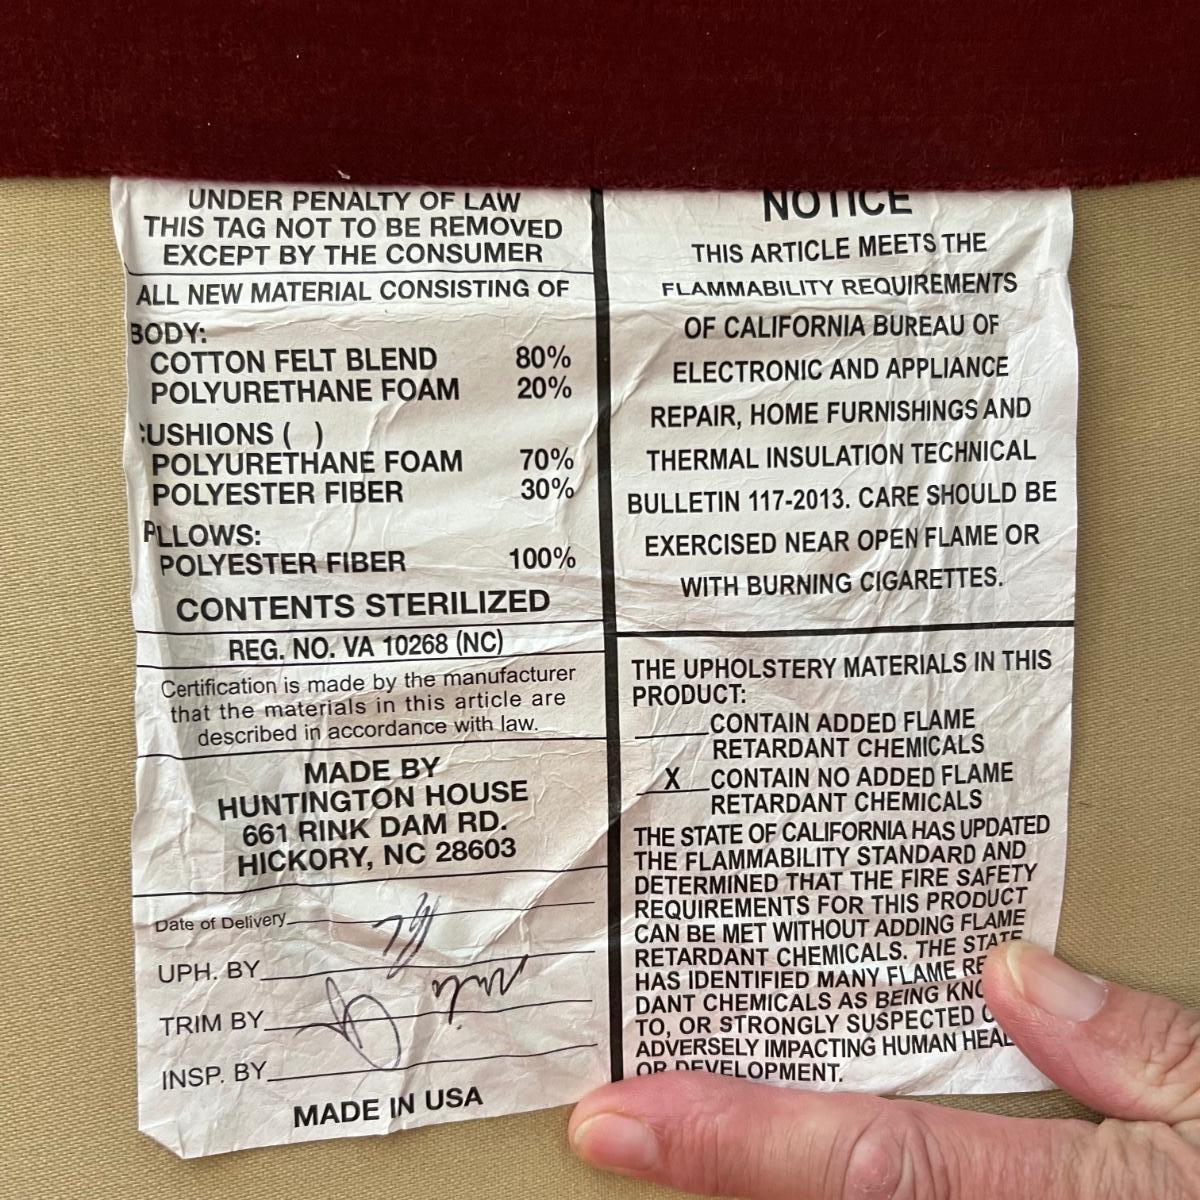 UNDER PENALTY OF LAW
THIS TAG NOT TO BE REMOVED
EXCEPT BY THE CONSUMER
ALL NEW MATERIAL CONSISTING OF
BODY:
COTTON FELT BLEND 80%
POLYURETHANE FOAM 20%
CUSHIONS ( )
POLYURETHANE FOAM 70%
POLYESTER FIBER 30%
PLLOWS:
POLYESTER FIBER 100%
CONTENTS STERILIZED
REG. NO. VA 10268 (NC)
Certification is made by the manufacturer
that the materials in this article are
described in accordance with law.
MADE BY
HUNTINGTON HOUSE
661 RINK DAM RD.
HICKORY, NC 28603
Date of Delivery
UPH. BY
TRIM BY
INSP. BY
MADE IN USA
NOTICE
THIS ARTICLE MEETS THE
FLAMMABILITY REQUIREMENTS
OF CALIFORNIA BUREAU OF
ELECTRONIC AND APPLIANCE
REPAIR, HOME FURNISHINGS AND
THERMAL INSULATION TECHNICAL
BULLETIN 117-2013. CARE SHOULD BE
EXERCISED NEAR OPEN FLAME OR
WITH BURNING CIGARETTES.
THE UPHOLSTERY MATERIALS IN THIS
PRODUCT:
CONTAIN ADDED FLAME
RETARDANT CHEMICALS
X CONTAIN NO ADDED FLAME
RETARDANT CHEMICALS
THE STATE OF CALIFORNIA HAS UPDATED
THE FLAMMABILITY STANDARD AND
DETERMINED THAT THE FIRE SAFETY
REQUIREMENTS FOR THIS PRODUCT
CAN BE MET WITHOUT ADDING FLAME
RETARDANT CHEMICALS. THE STATE
HAS IDENTIFIED MANY FLAME RE
DANT CHEMICALS AS BEING KNO
TO, OR STRONGLY SUSPECTED O
ADVERSELY IMPACTING HUMAN HEAL
OR DEVELOPMENT.